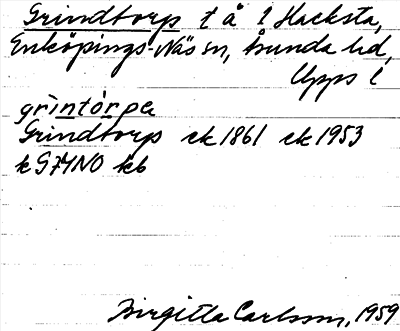 Grindtorp t å i Hacksta,
Enköpings-Näs sn, Trunda hd,
Upps l
grìntòrpa
Grindtorp ek 1861 ek 1953
k G7YNO kb
Birgitta Carlsson, 1959